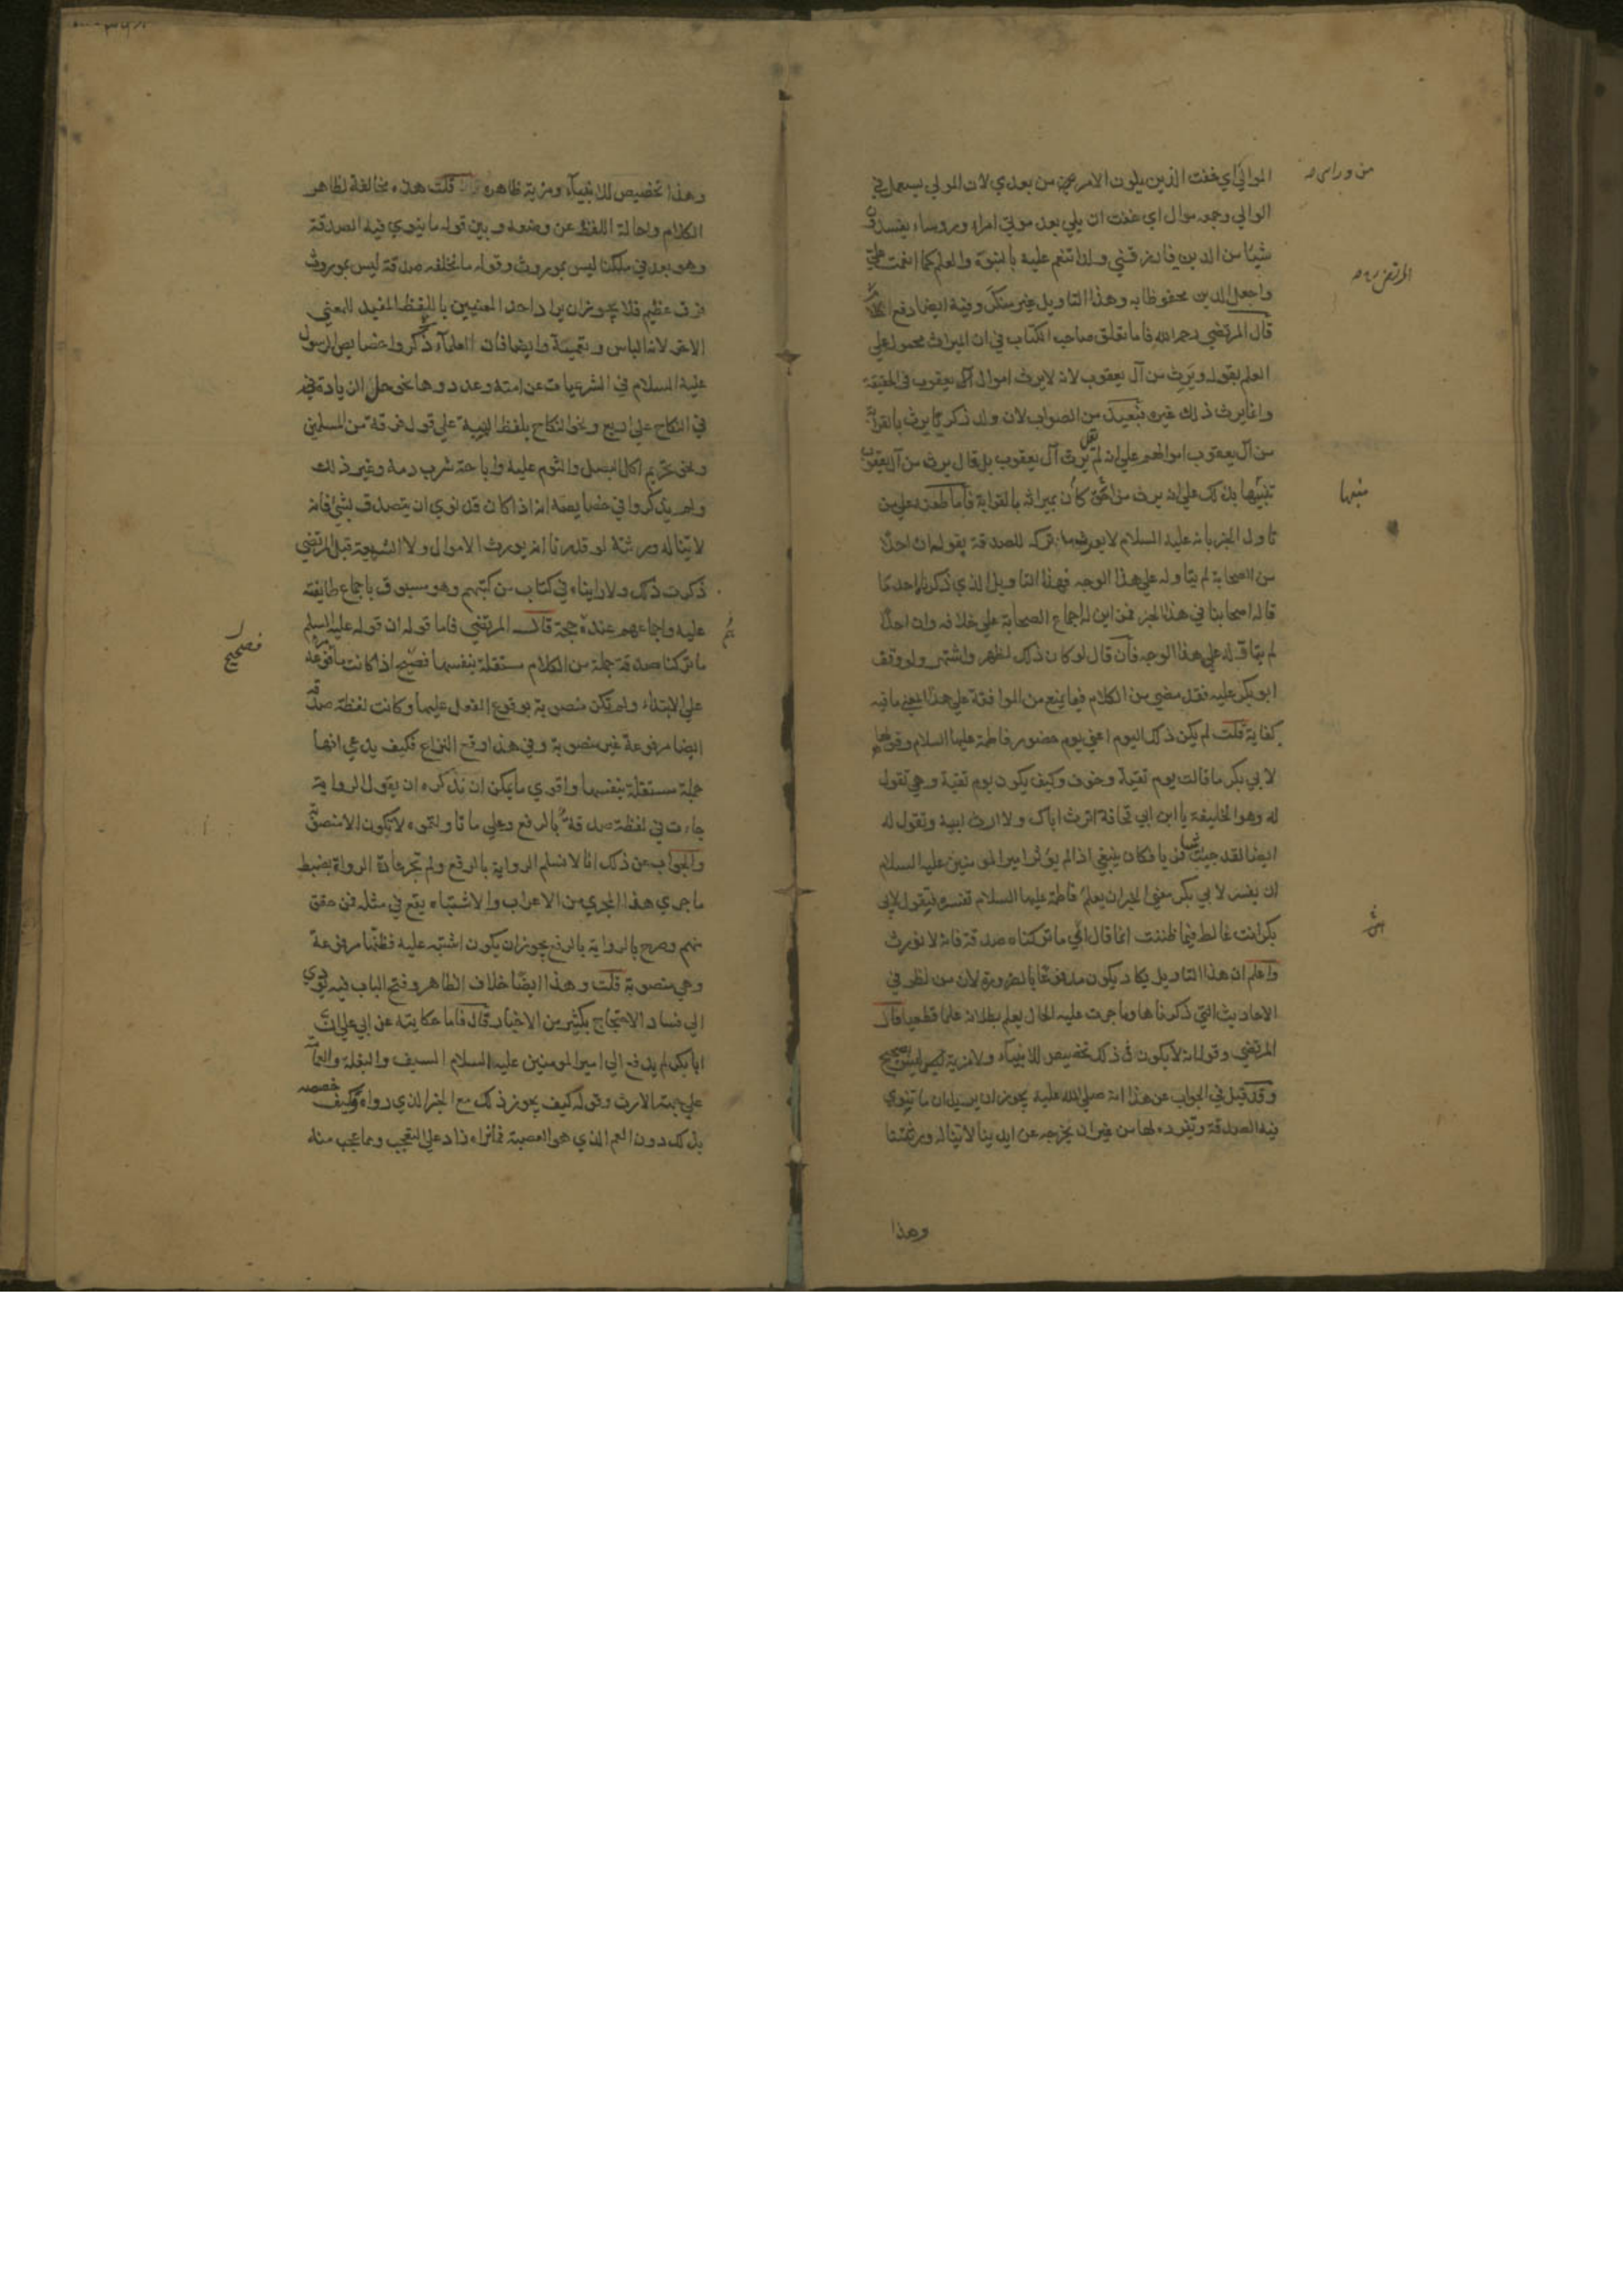 الموالي اي خفت الذين يلون الامر من بعدي لان المولي يستعمل في
الوالي وجمعه موال اي خفت ان يلي بعد موتي امراء ورؤساء يفسدون
شيئا من الدين فارزقني ولدا تنعم عليه بالنبوة والعلم كما انعمت علي
واجعل الدين محفوظا به وهذا التاويل غير منكر وفيه ايضا دفع
قال المرتضي رحمه الله فاما تعلق صاحب الكتاب في ان الميراث محمول علي
العلم بقوله ويرث من آل يعقوب لانه لا يرث اموال آل يعقوب في الحقيقة
وانما يرث ذلك غيره فبعيد من الصواب لان ولد ذكريا يرث بالقرابة
من آل يعقوب اموالهم علي انه لم يقل يرث آل يعقوب بل قال يرث من آل يعقوب
تنبيها بذلك علي انه يرث من كان احق بميراثه بالقرابة فاما طعنه علي من
تاول الخبر بانه عليه السلام لا يورث ما تركه للصدقة بقوله ان احدا
من الصحابة لم يتاوله علي هذا الوجه فهذا التاويل الذي ذكرناه احد ما
قاله اصحابنا في هذا الخبر فمن اين له اجماع الصحابة علي خلافه وان احدا
لم يتاوله علي هذا الوجه فان قال لو كان ذلك لظهر واشتهر ولوقف
ابو بكر عليه فقد مضي من الكلام فيما يمنع من الموافقة علي هذا المعني ما فيه
كفاية قلت لم يكن ذلك اليوم اعني يوم حضور فاطمة عليها السلام وقولها
لابي بكر ما قالت يوم تقية وخوف وكيف يكون يوم تقية وهي تقول
له وهو الخليفة يا ابن ابي قحافة اترث اباك ولا ارث ابيه وتقول له
ايضا لقد جيت شيا فريا فكان ينبغي اذا لم يؤثر امير المومنين عليه السلام
ان يفسر لابي بكر معني الخبر ان يعلم فاطمة عليها السلام تفسيره فتقول لابي
بكر انت غالط فيما ظننت انما قال ابي ما تركناه صدقة فانه لا نورث
واعلم ان هذا التاويل يكاد يكون مدفوعا بالضرورة لان من نظر في
الاحاديث التي ذكرناها وما جرت عليه الحال يعلم بطلانه علما قطعيا قال
المرتضي وقوله انه لا يكون في ذلك تخصيص للانبياء ولا مزية ليس بصحيح
وقد قيل في الجواب عن هذا انه صلي الله عليه يجوز ان يريد ان ما ننوي
فيه الصدقة ونفرده لها من غير ان نخرجه عن ايدينا لا يناله ورثتنا
وهذا
من وراى
المرتضى
منبها
وهذا تخصيص للانبياء ومزية ظاهرة قلت هذه مخالفة لظاهر
الكلام واحالة اللفظ عن وضعه وبين قوله ما ينوي فيه الصدقة
وهو بعد في ملكنا ليس بموروث وقوله ما نخلفه صدقة ليس بموروث
فرق عظيم فلا يجوز ان يراد احد المعنيين باللفظ المفيد للمعني
الاخر لانه الباس وتعمية وايضا فان العلماء ذكروا خصايص الرسول
عليه السلام في الشرعيات عن امته وعددوها نحو حل الزيادة
في النكاح علي اربع ونحو النكاح بلفظ الهبة علي قول فرقة من المسلمين
ونحو تحريم اكل البصل والثوم عليه واباحة شرب دمه وغير ذلك
ولم يذكروا في خصايصه انه اذا كان قد نوي ان يتصدق بشئ فانه
لا يناله ورثته لو قدرنا انه يورث الاموال ولا الشيعة قبل المرتضي
ذكرت ذلك ولا راينا في كتاب من كتبهم وهو مسبوق باجماع طايفته
عليه واجماعهم عنده حجة قال المرتضي فاما قوله ان قوله عليه السلم
ما تركنا صدقة جملة من الكلام مستقلة بنفسها فصحيح اذا كانت ما مرفوعة
علي الابتداء ولم تكن منصوبة بوقوع الفعل عليها وكانت لفظة صدقة
ايضا مرفوعة غير منصوبة وفي هذا وقع النزاع فكيف يدعي انها
جملة مستقلة بنفسها واقوي ما يمكن ان نذكره ان يقول الرواية
جاءت في لفظة صدقة بالرفع وعلي ما تاولتموه لا تكون الا منصوبة
والجواب عن ذلك انا لا نسلم الرواية بالرفع ولم تجر عادة الرواة بضبط
ما جري هذا المجري من الاعراب والاشتباه يقع في مثله فمن حقق
منهم وصرح بالرواية بالرفع يجوز ان يكون اشتبه عليه فظنها مرفوعة
وهي منصوبة قلت وهذا ايضا خلاف الظاهر وفتح الباب فيه يؤدي
الي فساد الاحتجاج بكثير من الاخبار قال فاما حكايته عن ابي علي ان
ابا بكر لم يدفع الي امير المومنين عليه السلام السيف والبغلة والعمامة
علي جهة الارث وقوله كيف يجوز ذلك مع الخبر الذي رواه وكيف خصصه
بذلك دون العم الذي هو العصبة فما نراه زاد علي التعجب ومما عجب منه
فصحيح